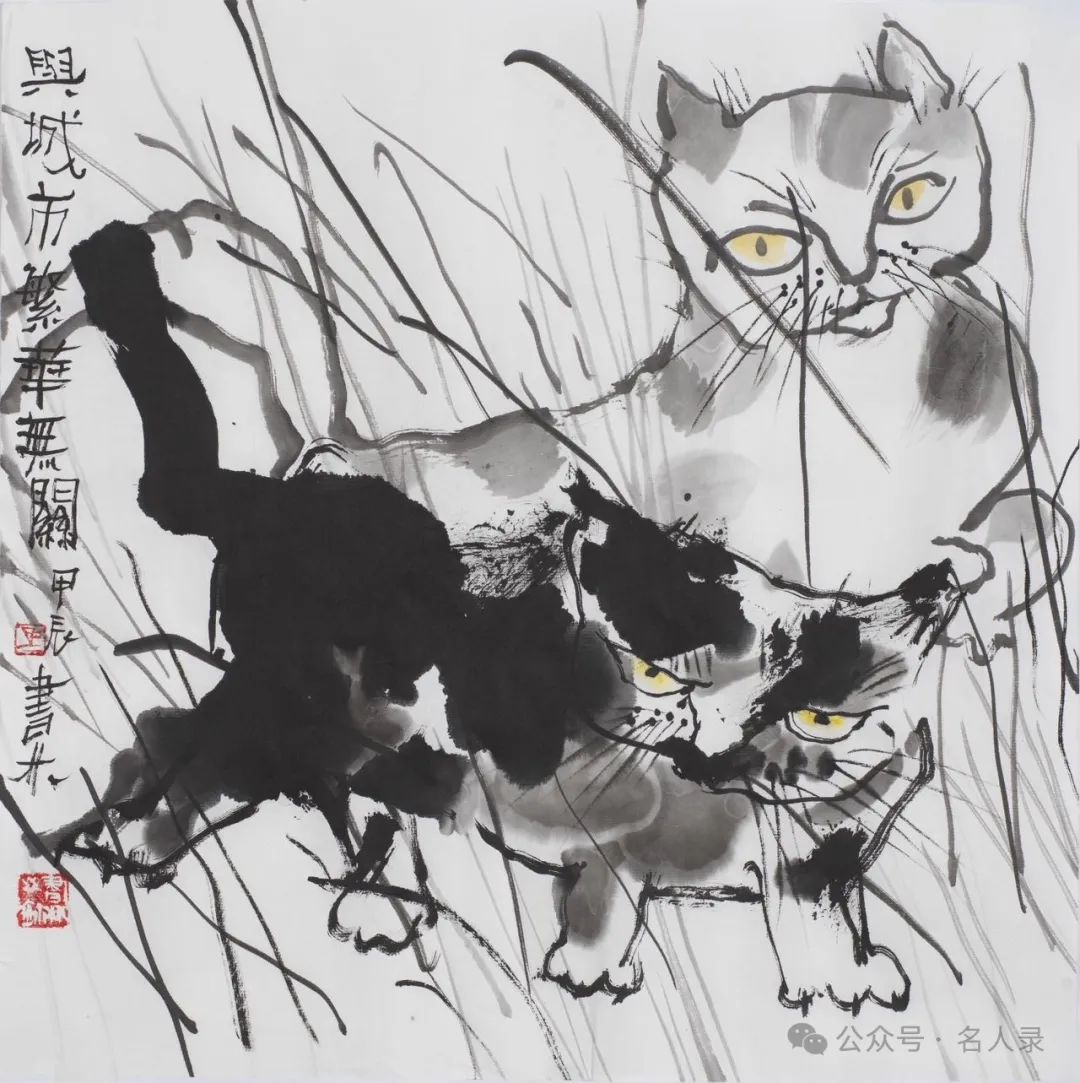 與城市繁華無關 甲辰 書林
公众号 · 名人录